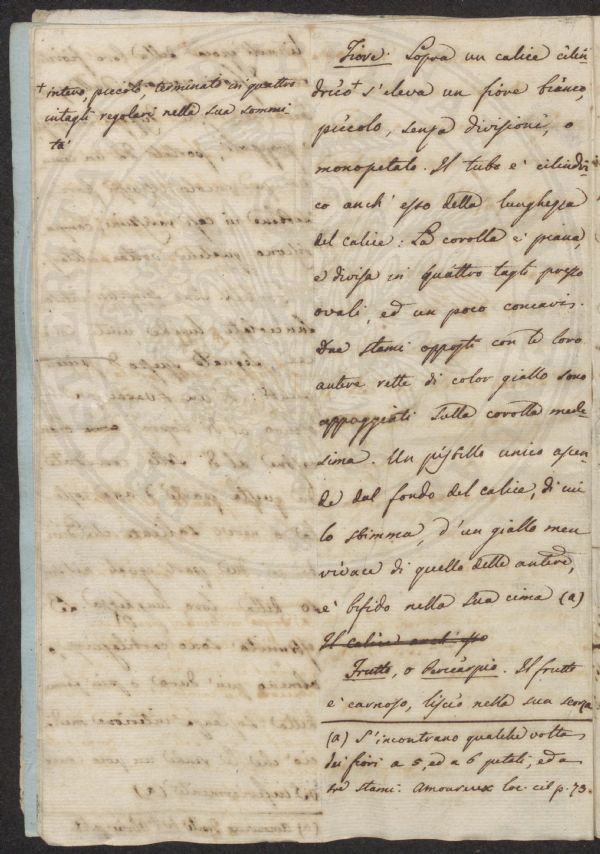 + intero piccolo terminato in quattro
intagli regolari nella sua sommi
tà
Fiore. Sopra un calice cilin-
drico+ s'eleva un fiore bianco,
piccolo, senza divisioni, o
monopetalo. Il tubo è cilindri-
co anch'esso della lunghezza
del calice: La corolla è piana,
e divisa in quattro tagli presso
ovali, ed un poco concavi.
Due stami opposti con le loro
antere rette di color giallo sono
appoggiati sulla corolla mede-
sima. Un pistillo unico ascen-
de dal fondo del calice, di cui
lo stimma, d'un giallo men
vivace di quello delle antere,
è bifido nella sua cima (a)
Il calice anch'esso
Frutto, o Pericarpio. Il frutto
è carnoso, liscio nella sua scorza
(a) S'incontrano qualche volta
dei fiori a 5, ed a 6 petali, ed a
tre stami. Amoureux loc. cit p. 73.